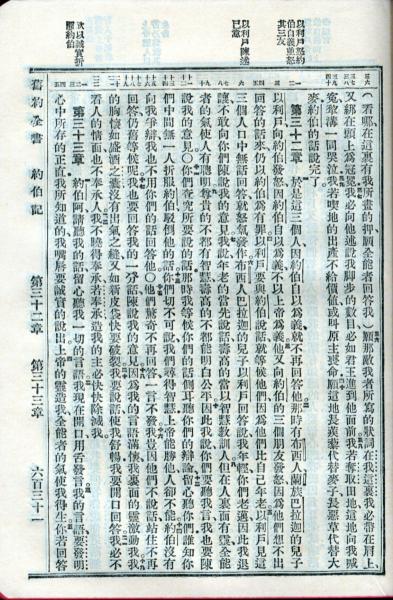 以利戶怒約
伯自義並怒
其三友
以利戶陳述
己意
次以誠實折
服約伯
（看哪在這裏有我所畫的押願全能者回答我）願那敵我者所寫的狀詞在我這裏我必帶在肩上
又綁在頭上為冠冕我必向他述說我腳步的數目必如君王進到他面前我若奪取田地這地向我喊
冤犂溝一同哭泣我若喫地的出產不給價值或叫原主喪命願這地長蒺藜代替麥子長惡草代替大
麥約伯的話說完了
第三十二章 於是這三個人因約伯自以為義就不再回答他那時有布西人蘭族巴拉迦的兒子
以利戶向約伯發怒因約伯自以為義不以上帝為義他又向約伯的三個朋友發怒因為他們想不出
回答的話來仍以約伯為有罪以利戶要與約伯說話就等候他們因為他們比自己年老以利戶見這
三個人口中無話回答就怒氣發作布西人巴拉迦的兒子以利戶回答說我年輕你們老邁因此我退
讓不敢向你們陳說我的意見我說年老的當先說話壽高的當以智慧教訓人但在人裏面有靈全能
者的氣使人有聰明尊貴的不都有智慧壽高的不都能明白公平因此我說你們要聽我言我也要陳
說我的意見○你們查究所要說的話那時我等候你們的話側耳聽你們的辯論留心聽你們誰知你
們中間無一人折服約伯駁倒他的話你們切不可說我們尋得智慧上帝能勝他人卻不能約伯沒有
向我爭辯我也不用你們的話回答他○他們驚奇不再回答一言不發我豈因他們不說話站住不再
回答仍舊等候呢我也要回答我的一分話陳說我的意見因為我的言語滿懷我裏面的靈激動我我
的胸懷如盛酒之囊沒有出氣之縫又如新皮袋快要破裂我要說話使我舒暢我要開口回答我必不
看人的情面也不奉承人我不曉得奉承若奉承造我的主必快快除滅我
第三十三章 約伯阿請聽我的話留心聽我一切的言語我現在開口用舌發言我的言語要發明
心中所存的正直我所知道的我嘴唇要誠實的說出上帝的靈造我全能者的氣使我得生你若回答
舊約全書 約伯記 第三十二章 第三十三章 六百三十一